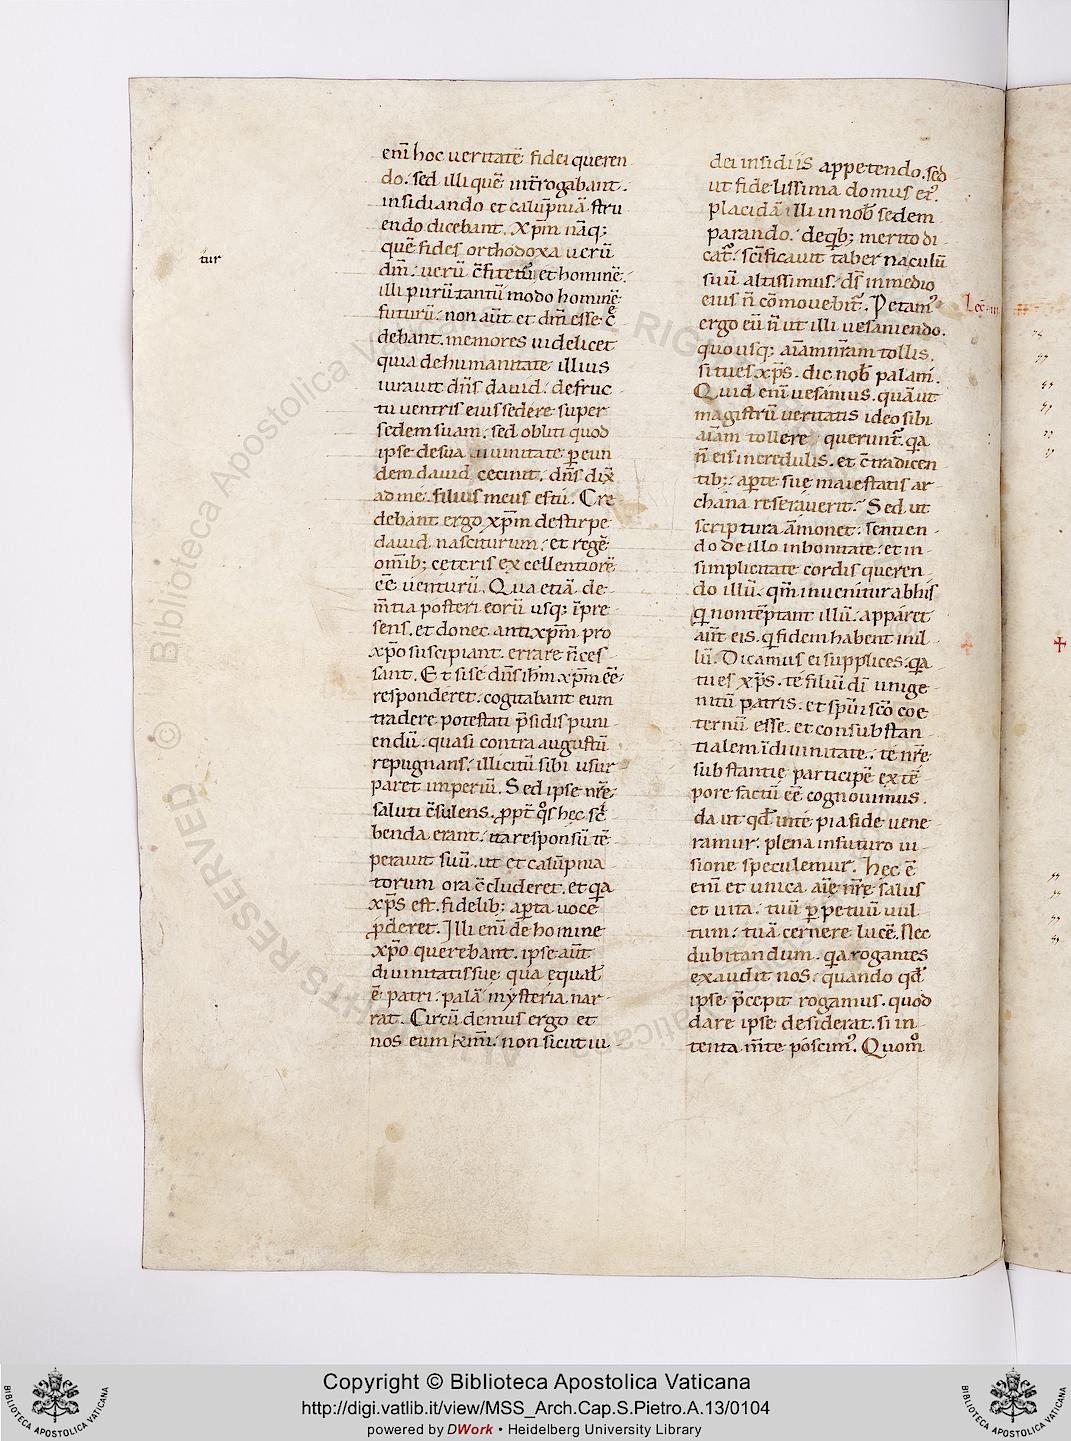 tur
eni̅ hoc ueritate̅ fidei queren
do. sed illi que̅ int̅rogabant.
insidiando et calu̅pnia̅ stru
endo dicebant. Xp̅m na̅q;
que̅ fides orthodoxa ueru̅
dm̅. ueru̅ c̅fitetur et homine̅.
illi puru̅ tantu̅ modo homine̅
futuru̅. non aut̅ et dm̅ esse c̅e
debant. memores uidelicet
quia de humanitate illius
iurauit dn̅s dauid. de fruc
tu uentris eius sedere super
sedem suam. sed obliti quod
ipse de sua diuinitate p̲ eun
dem dauid cecinit. dn̅s dix̅
ad me. filius meus es tu. Cre
debant ergo xp̅m de stirpe
dauid nasciturum. et rege̅
om̅ib; ceteris excellentiore̅
ee̅ uenturu̅. Qua etia̅ de
m̅tia posteri eoru̅ usq; i̅ pre
sens. et donec antixp̅m pro
xp̅o suscipiant. errare n̅ ces
sant. Et si se dn̅s ih̅m xp̅m ee̅
responderet. cogitabant eum
tradere potestati p̅sidis puni
endu̅. quasi contra augustu̅
repugnans. illicitu̅ sibi usur
paret imperiu̅. Sed ipse nr̅e
saluti c̅sulens. ꝓpt̅ q̊s hec sc̅i
benda erant. ita responsu̅ te̅
perauit suu̅. ut et calu̅pnia
torum ora c̅cluderet. et q̅a
xp̅s est. fidelib; ap̲ta uoce
ꝓderet. Illi eni̅ de homine
xp̅o querebant. ipse aut̅
diuinitatis sue qua equal̅
e̅ patri. pala̅ mysteria nar
rat. Circu̅demus ergo et
nos eum non sicut iu
dei insidiis appetendo. sed
ut fidelissima domus ei᷒.
placida̅ illi in nob̅ sedem
parando. de q̅b; merito di
cat᷒. sc̅ificauit tabernaculu̅
suu̅ altissimus. ds̅ in medio
eius n̅ co̅mouebit᷒. Petam᷒
ergo eu̅ n̅ ut illi uesaniendo.
quo usq; aia̅m nr̅am tollis.
si tu es xp̅s. dic nob̅ palam.
Quid eni̅ uesanius. qua̅ ut
magistru̅ ueritatis ideo sibi
aia̅m tollere querunt᷒. q̅a
n̅ eis incredulis. et c̅tradicen
tib; ap̲te sue maiestatis ar
chana reserauerit. Sed ut
scriptura a̅monet. sentien
do de illo in bonitate. et in
simplicitate cordis queren
do illu̅. qm̅ inuenitur ab his
q̅ non te̅ptant illu̅. apparet
aut̅ eis. q̅ fidem habent in il
lu̅. Dicamus ei supplices. q̅a
tu es xp̅s. te filiu̅ di̅ unige
nitu̅ patris. et spu̅i sc̅o coe
ternu̅ esse. et consubstan
tialem i̅ diuinitate. te nr̅e
substantie participe̅ ex te̅
pore factu̅ ee̅ cognouimus.
da ut qd̅ in te pia fide uene
ramur. plena in futuro ui
sione speculemur. Hec e̅
eni̅ et unica aie̅ nr̅e salus
et uita. tuu̅ p̲petuu̅ uul
tum. tua̅ cernere luce̅. Nec
dubitandum. q̅a rogantes
exaudit nos. quando qd̅
ipse p̅cepit rogamus. quod
dare ipse desiderat. si in
tenta m̅te poscim᷒. Quom̊
Lec̅. iii
Copyright © Biblioteca Apostolica Vaticana
http://digi.vatlib.it/view/MSS_Arch.Cap.S.Pietro.A.13/0104
powered by DWork • Heidelberg University Library
BIBLIOTECA APOSTOLICA VATICANA
BIBLIOTECA APOSTOLICA VATICANA